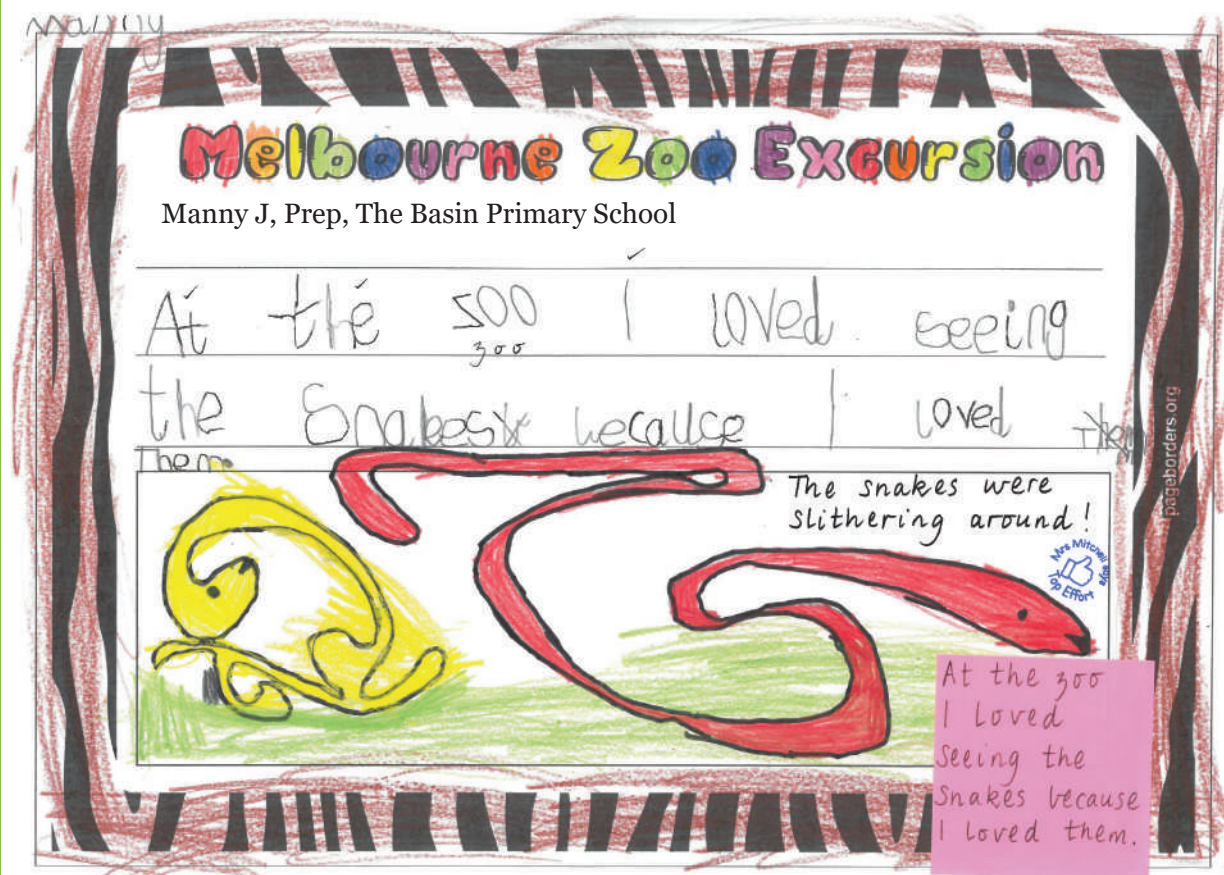 Manny
Melbourne Zoo Excursion
Manny J, Prep, The Basin Primary School
At the soo I loved seeing
zoo
the Snakes because I loved them
Them.
The snakes were
slithering around!
Mrs Mitchell says
Top Effort
At the zoo
I loved
seeing the
snakes because
I loved them.
pageborders.org